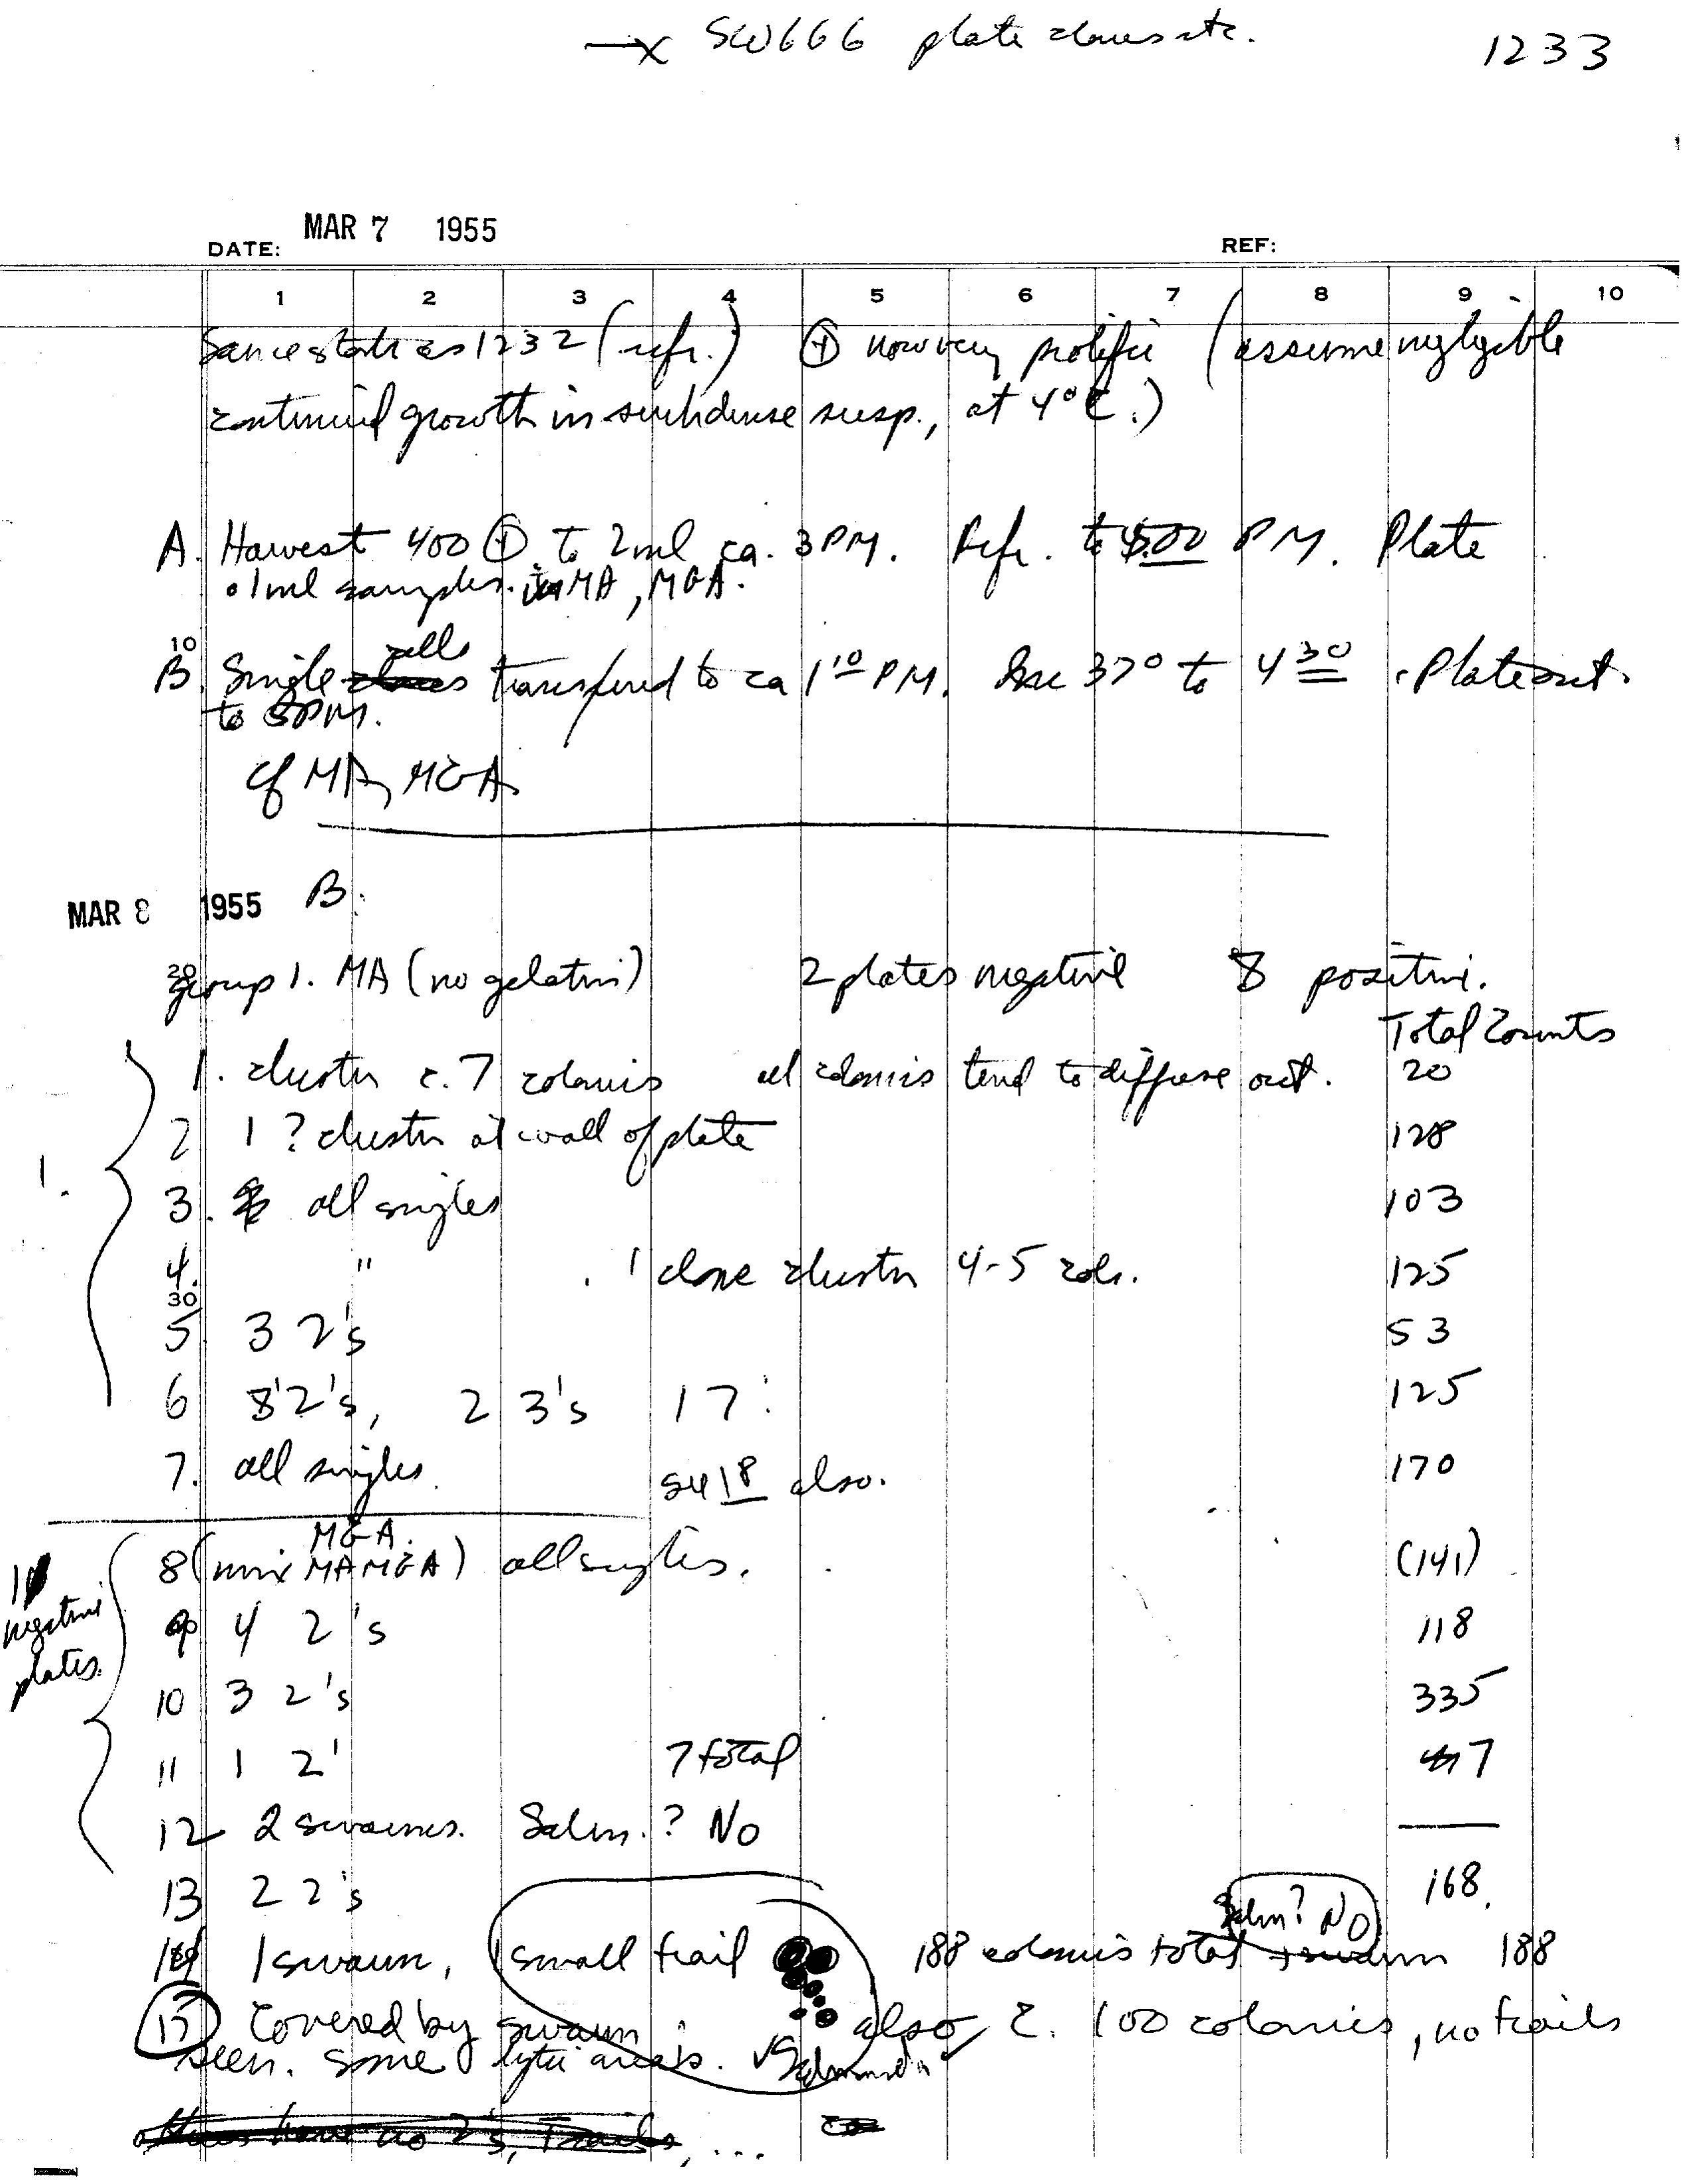 —x SW666 plate clones etc. 1233
MAR 7 1955
DATE: REF:
1 2 3 4 5 6 7 8 9 10
Same stale as 1232 (refr.) ⊕ now very prolific (assume neglygible
continued growth in such dense susp., at 4°C.)
A. Harvest 400 ⊕ to 2ml ca. 3PM. Refr. to 5:00 PM. Plate
.1ml samples. in MA, MGA.
10
B. Single cells transferred to ca 1 10 PM. Inc 37° to 4 30. Plate out.
to 5PM.
cf MA, MGA
MAR 8 1955 B.
20
group 1. MA (no gelatin) 2 plates negative 8 positive.
Total Counts
1. cluster c. 7 colonies all colonies tend to diffuse out. 20
2 1 ? cluster at wall of plate 128
1.
3. all singles 103
4. " . 1 close cluster 4-5 cols. 125
30
5 3 2's 53
6 8 2's, 2 3's 1 7: 125
7. all singles. also. 170
MGA.
8 (mix MA MGA) all singles. (141)
1 negative plates.
9 4 2's 118
10 3 2's 335
11 1 2' 7 total 7
12 2 swarms. Salm.? No —
13 2 2's 168.
Salm? No
14 1 swarm, 1 small trail 188 colonies total + swarm 188
15 Covered by swarm; also c. 100 colonies, no trails
seen. Some lytic areas.
others have no 2's, Trails, ...